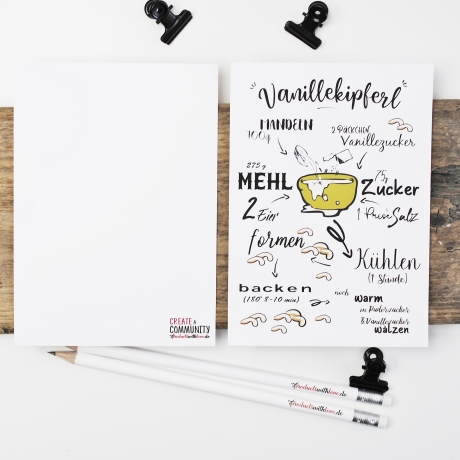 Vanillekipferl
MANDELN
100g
2 PÄCKCHEN
Vanillezucker
275 g
MEHL
75g
Zucker
2 Eier
1 Prise Salz
formen
Kühlen
(1 Stunde)
backen
(180° 8-10 min)
noch warm
in Puderzucker
& Vanillezucker
wälzen
CREATE A
COMMUNITY
Productswithlove.de
Productswithlove.de
Productswithlove.de